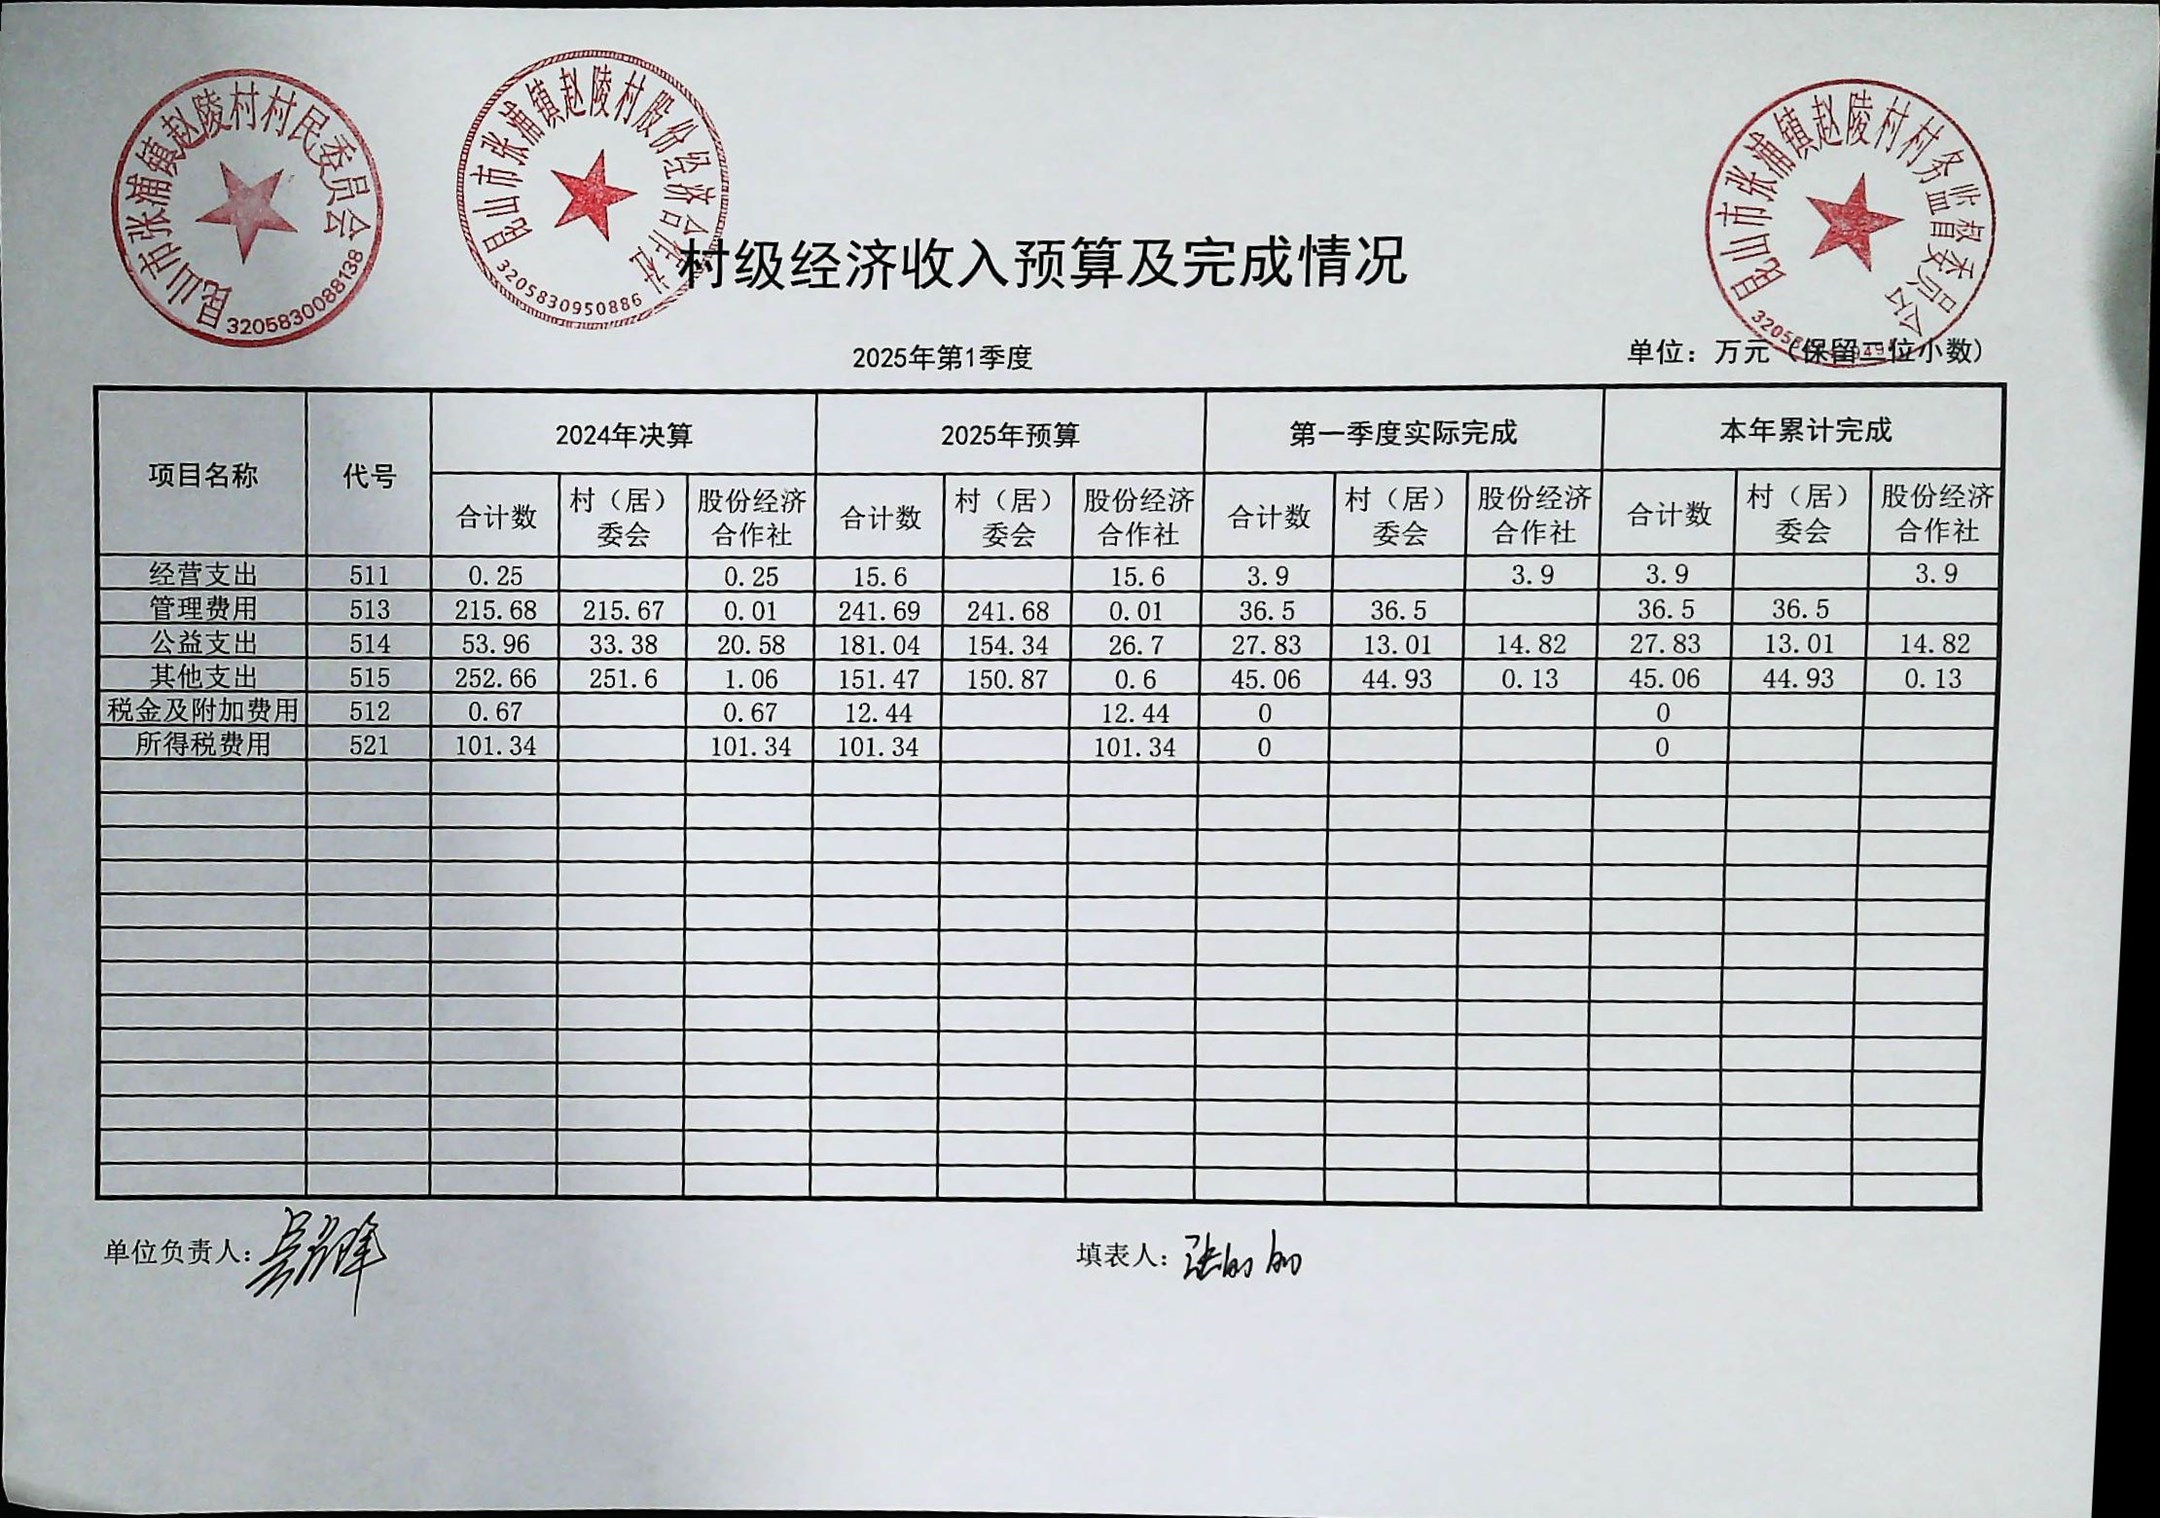 昆山市张浦镇赵陵村村民委员会
3205830088138
昆山市张浦镇赵陵村股份经济合作社
3205830950886
昆山市张浦镇赵陵村村务监督委员会
村级经济收入预算及完成情况
2025年第1季度
单位：万元（保留二位小数）
项目名称 代号 2024年决算 2025年预算 第一季度实际完成 本年累计完成
合计数 村（居）委会 股份经济合作社 合计数 村（居）委会 股份经济合作社 合计数 村（居）委会 股份经济合作社 合计数 村（居）委会 股份经济合作社
经营支出 511 0.25 0.25 15.6 15.6 3.9 3.9 3.9 3.9
管理费用 513 215.68 215.67 0.01 241.69 241.68 0.01 36.5 36.5 36.5 36.5
公益支出 514 53.96 33.38 20.58 181.04 154.34 26.7 27.83 13.01 14.82 27.83 13.01 14.82
其他支出 515 252.66 251.6 1.06 151.47 150.87 0.6 45.06 44.93 0.13 45.06 44.93 0.13
税金及附加费用 512 0.67 0.67 12.44 12.44 0 0
所得税费用 521 101.34 101.34 101.34 101.34 0 0
单位负责人：
填表人：